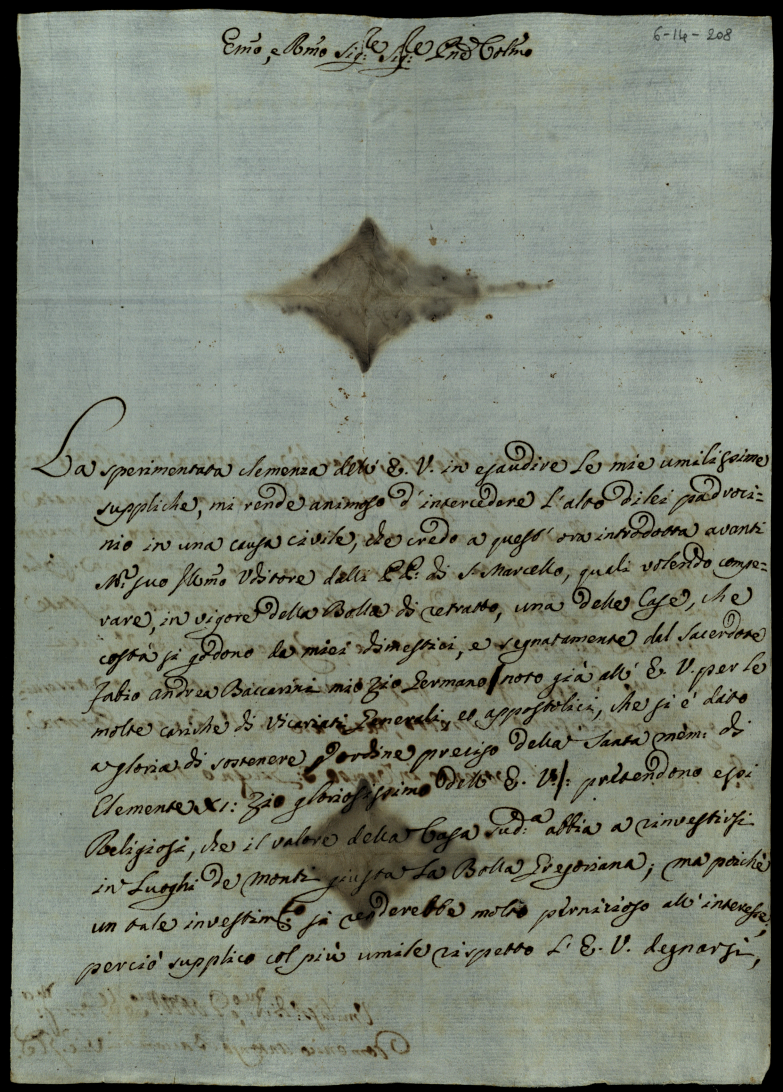 6-14-208
Emo, e Rmo Sig:re Sig:re Pne Colmo
La sperimentata clemenza dell' E. V. in esaudire le mie umilissime
suppliche, mi rende animoso d'intercedere l'alto di lei padroci=
nio in una causa civile, che credo a quest' ora introdotta avanti
Mr. suo Illmo Uditore dalli PP: di S. Marcello, quali volendo compe=
rare, in vigore della Bolla di retratto, una delle Case, che
costà si godono da miei dimestici, e segnatamente dal Sacerdote
Fabio Andrea Baccarini mio Zio Germano /noto già all' E. V. per le
molte cariche di Vicariati Generali, et appostolici, che si è dato
a gloria di sostenere d'ordine preciso della Santa mem: di
Clemente XI: Zio gloriosissimo dell' E. V./: prètendono essi
Religiosi, che il valore della Casa sud:a abbia a rinvestirsi
in Luoghi de Monti giusta La Bolla Gregoriana; ma poichè
un tale investim:to si renderebbe molto pernicioso all' interesse,
perciò supplico col più umile rispetto L' E. V. degnarsi,